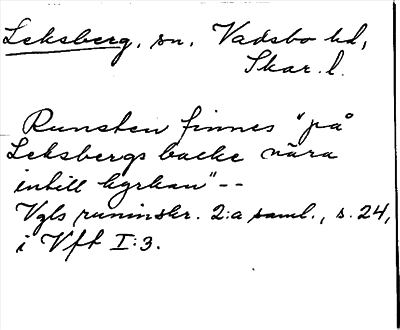 Leksberg, sn. Vadsbo hd,
Skar. l.
Runsten finnes "på
Leksbergs backe nära
intill kyrkan" --
Vgls runinskr. 2:a saml., s. 24,
i Vft I:3.